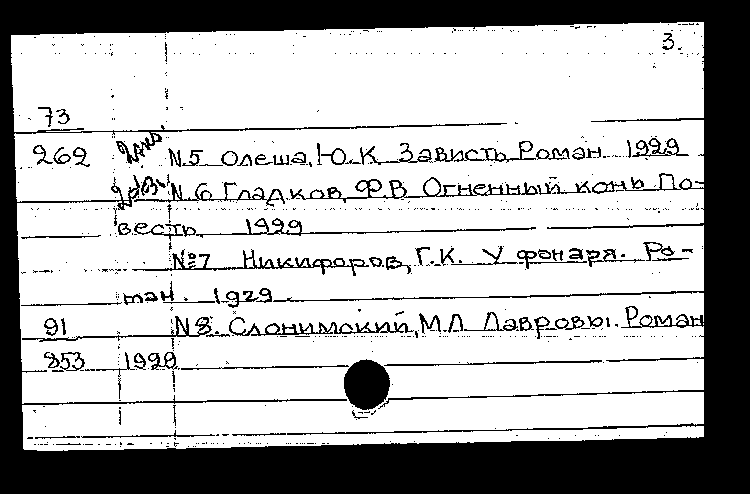 3.
73
262 2 экз. N.5 Олеша, Ю.К. Зависть Роман 1929
N.6 Гладков, Ф.В Огненный конь По-
весть 1929
№7 Никифоров, Г.К. У фонаря. Ро-
ман. 1929.
91 N 8. Слонимский, М.Л Лавровы. Роман
853 1929